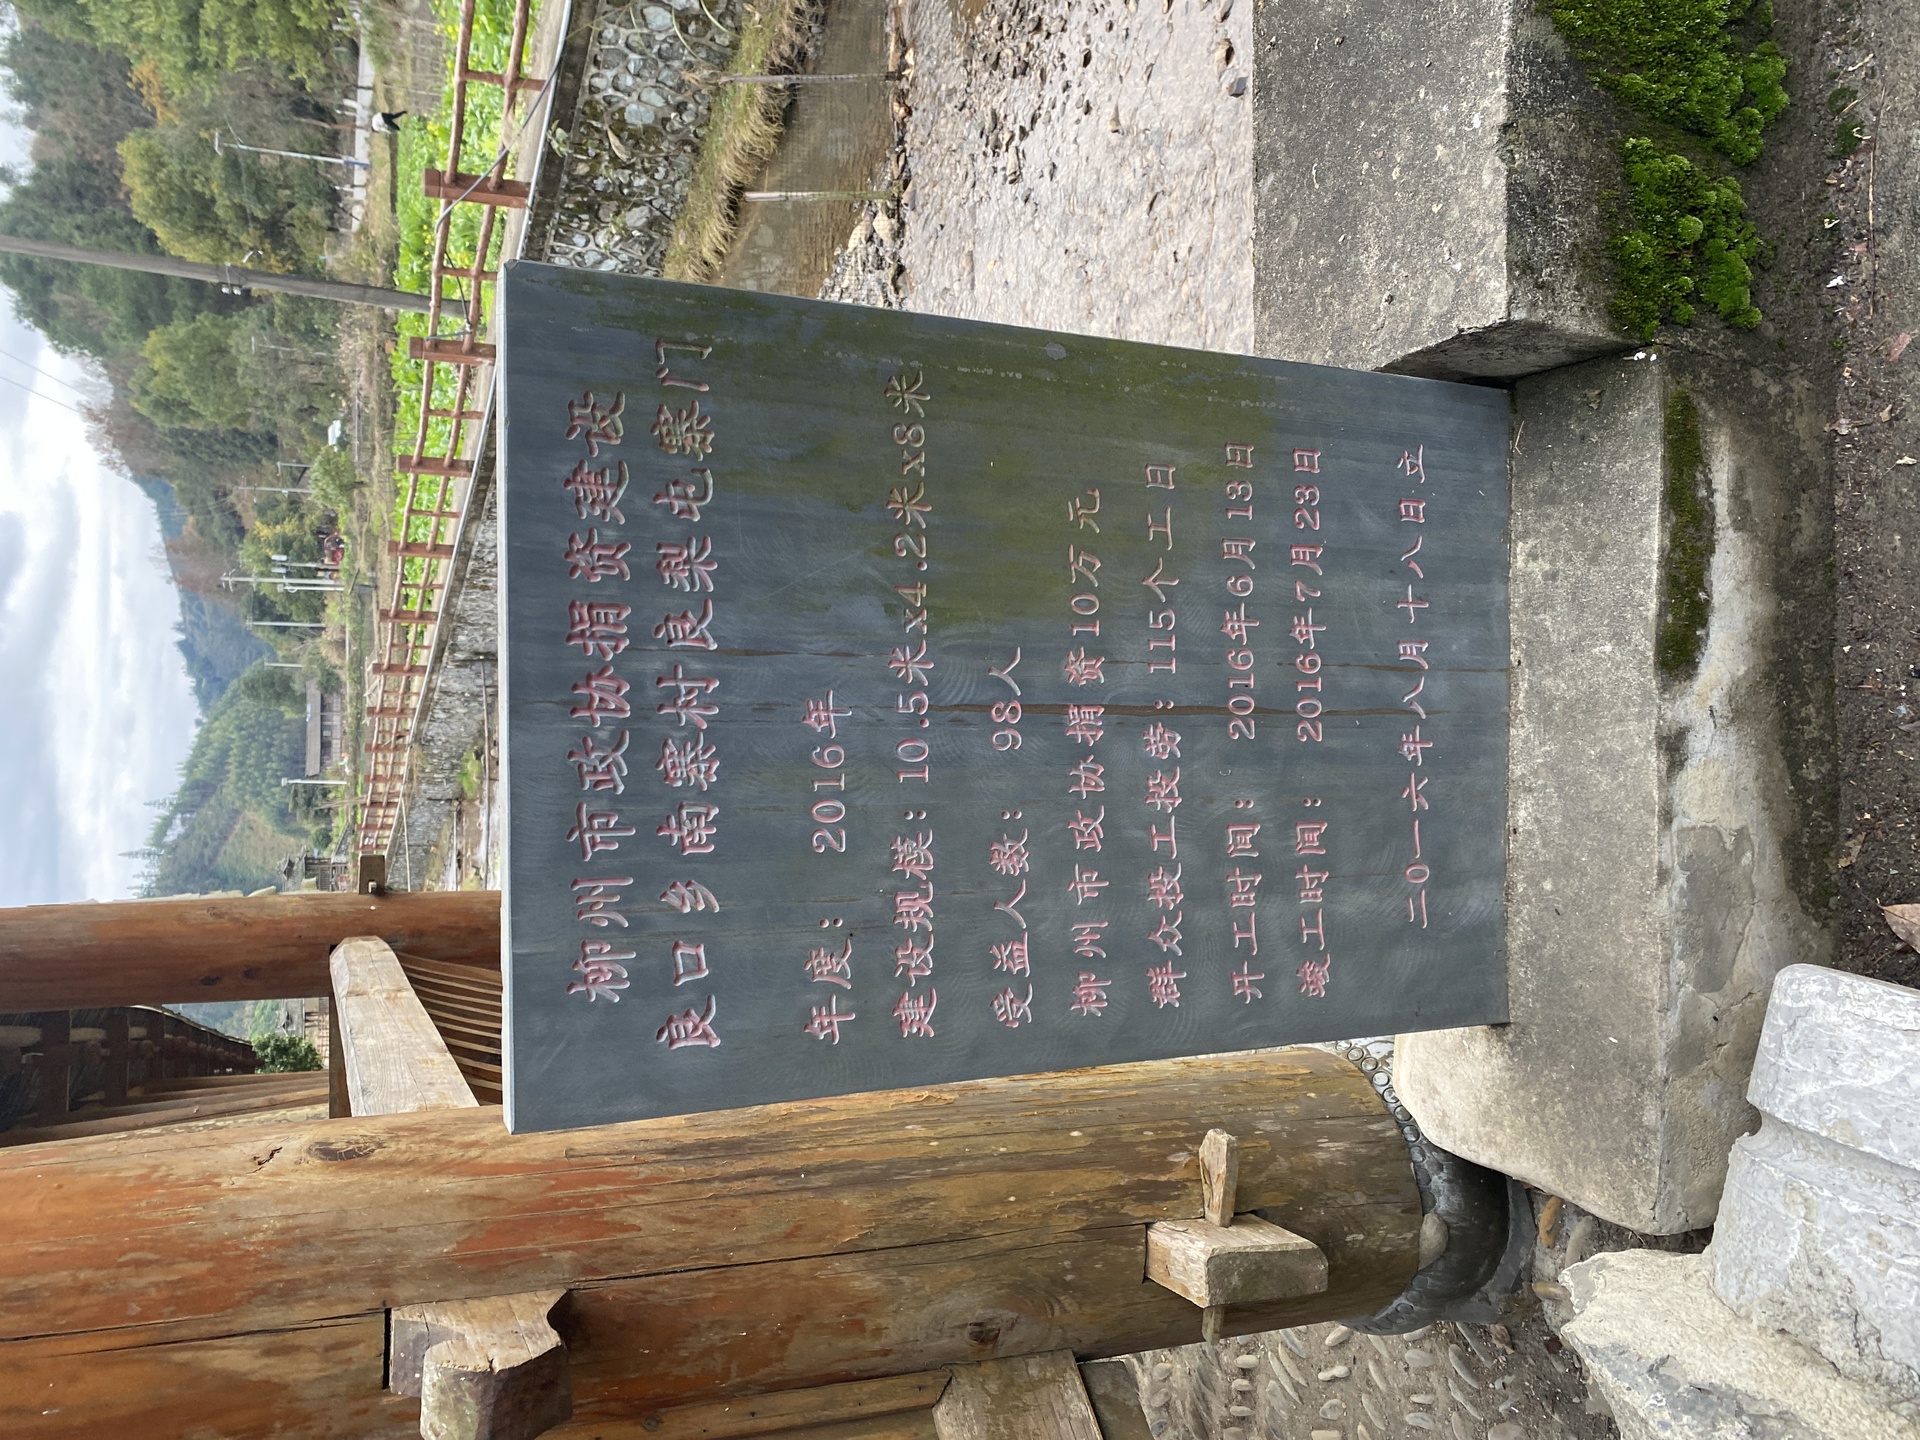 柳州市政协捐资建设
良口乡南寨村良梨屯寨门
年度：2016年
建设规模：10.5米x4.2米x8米
受益人数：98人
柳州市政协捐资10万元
群众投工投劳：115个工日
开工时间：2016年6月13日
竣工时间：2016年7月23日
二0一六年八月十八日立